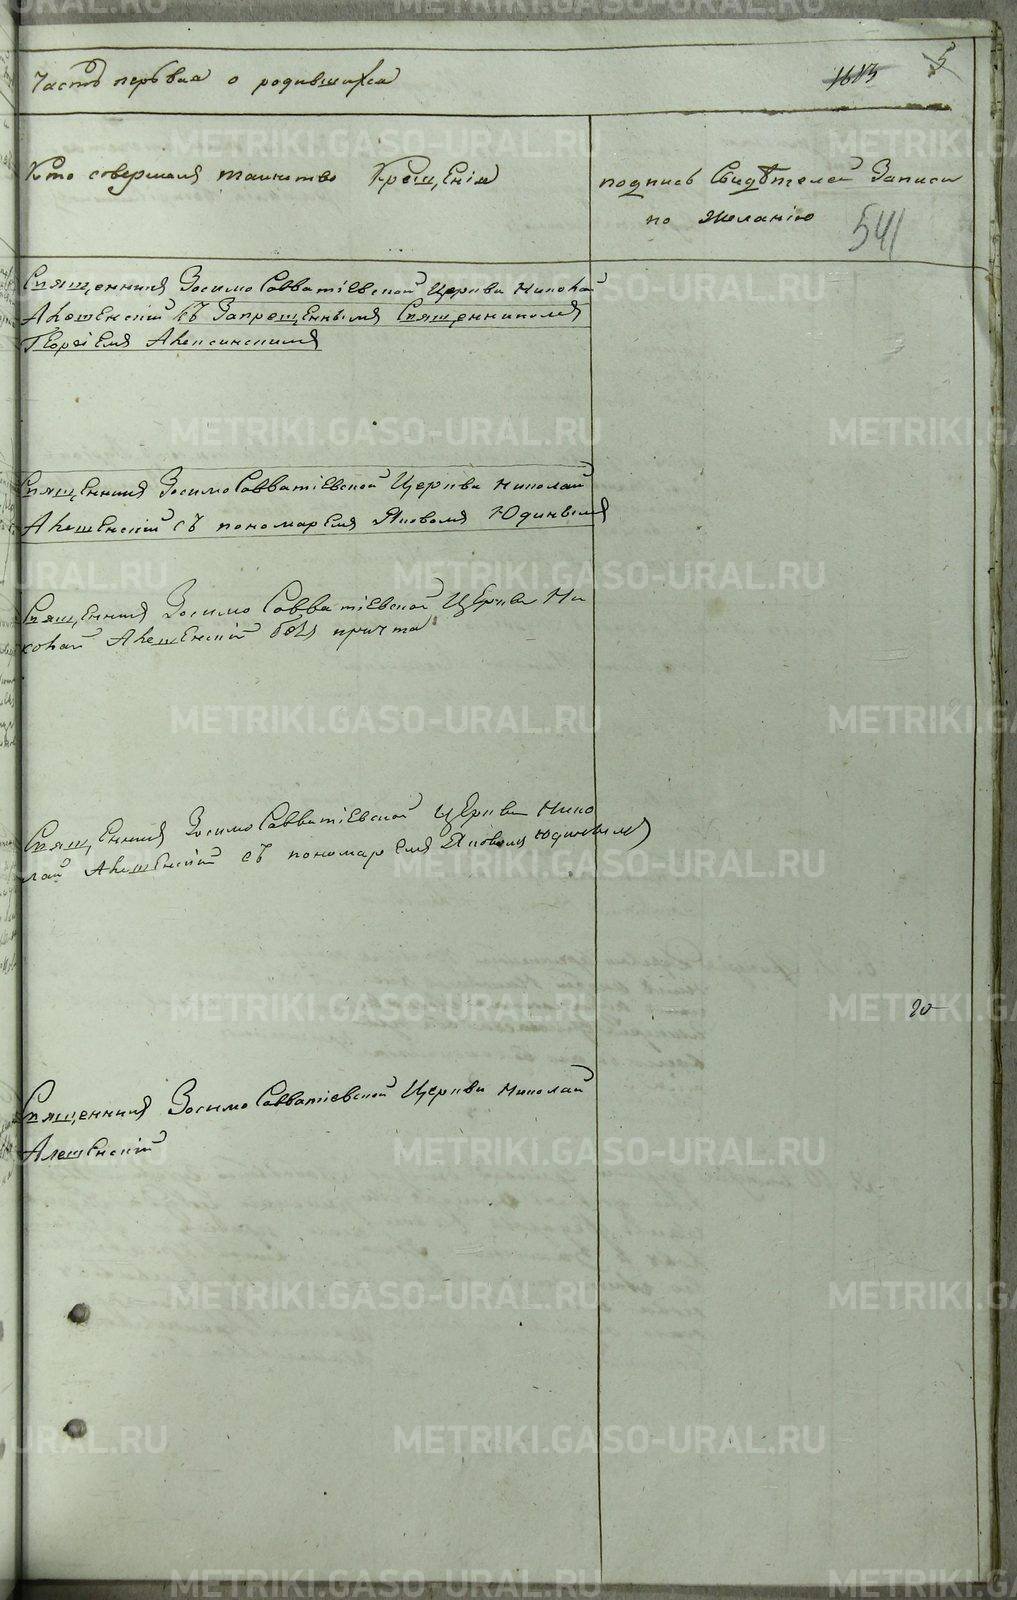 Часть первая о родившихся
1613 5
Кто совершалъ таинство Крещенія
подпись Свидѣтелей Записи
по желанію
541
Священникъ Зосимо Савватіевской Церкви Николай
Алешенскій съ Запрещеннымъ Священникомъ
Георгіемъ
Священникъ Зосимо Савватіевской Церкви Николай
Алешенскій съ пономаремъ Яковомъ Юдинымъ
Священникъ Зосимо Савватіевской Церкви Ни
колай Алешенскій безъ причта
Священникъ Зосимо Савватіевской Церкви Нико
лай Алешенскій съ пономаремъ Яковомъ Юдинымъ
20
Священникъ Зосимо Савватіевской Церкви Николай
Алешенскій
METRIKI.GASO-URAL.RU